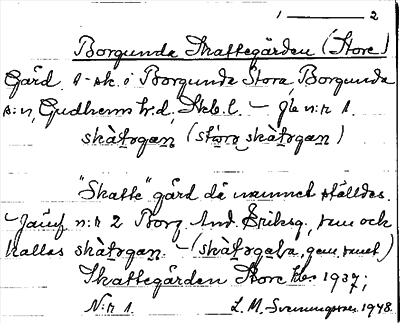 1 — 2
Borgunda Skattegården (Store)
Gård. i Borgunda Stora, Borgunda
s:n, Gudhems h:d, Skb.l. – Jb n:r 1.
skàtɔgan (stòrɔ skàtɔgan)
"Skatte" gård då namnet ställdes.
– Jämf. n:r 2 Borg. And. Eriksg., som och
kallas skàtɔgan. – (skàtɔgaʟa, gen.
Skattegården Store 1937;
N:r 1. L. M. Svenungsson 1948.